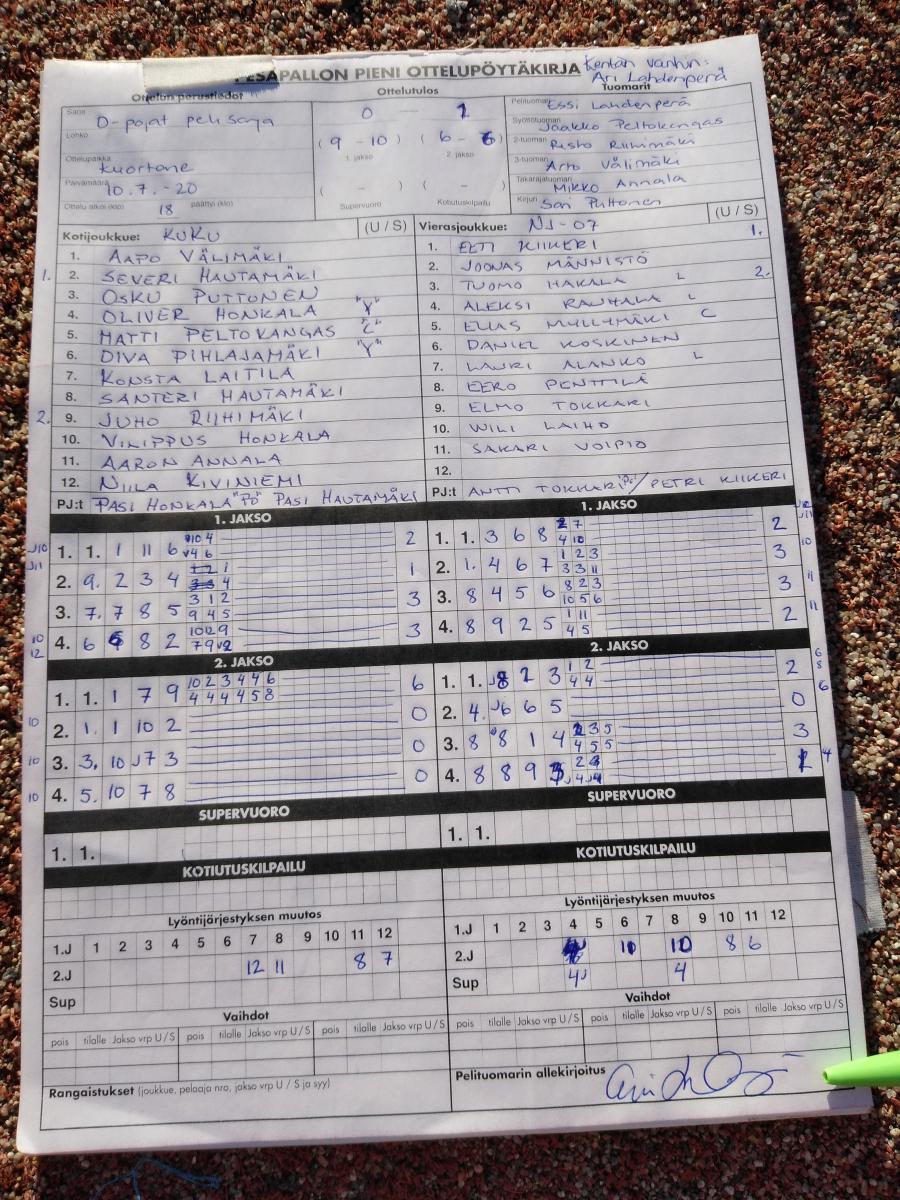 PESÄPALLON PIENI OTTELUPÖYTÄKIRJA
Kentän vanhin:
Ari Lahdenperä
Ottelun perustiedot
Ottelutulos
Tuomarit
Sarja D-pojat pelisarja
0 — 1
Pelituomari Essi Lahdenperä
Lohko
(9 - 10) (6 - 6)
Syöttötuomari Jaakko Peltokangas
1. jakso 2. jakso
2-tuomari Risto Riihimäki
Ottelupaikka Kuortane
3-tuomari Arto Välimäki
Päivämäärä 10.7.-20
( – ) ( – )
Takarajatuomari Mikko Annala
Ottelu alkoi (klo) 18 päättyi (klo)
Supervuoro Kotiutuskilpailu
Kirjuri Sari Puttonen
Kotijoukkue: KUKU (U / S)
1. AAPO VÄLIMÄKI
1. 2. SEVERI HAUTAMÄKI
3. OSKU PUTTONEN
4. OLIVER HONKALA "Y"
5. MATTI PELTOKANGAS "C"
6. DIVA PIHLAJAMÄKI "Y"
7. KONSTA LAITILA
8. SANTERI HAUTAMÄKI
2. 9. JUHO RIIHIMÄKI
10. VILIPPUS HONKALA
11. AARON ANNALA
12. NIILA KIVINIEMI
PJ:t PASI HONKALA "PÖ" PASI HAUTAMÄKI
Vierasjoukkue: NJ-07 (U / S)
1. EETI KIIKERI 1.
2. JOONAS MÄNNISTÖ
3. TUOMO HAKALA L 2.
4. ALEKSI RAUHALA L
5. ELIAS MYLLYMÄKI C
6. DANIEL KOSKINEN
7. LAURI ALANKO L
8. EERO PENTTILÄ
9. ELMO TOKKARI
10. WILI LAIHO
11. SAKARI VOIPIO
12.
PJ:t ANTTI TOKKARI / PETRI KIIKERI
1. JAKSO
1. 1. 1 11 6 2
2. 9. 2 3 4 1
3. 7. 7 8 5 3
4. 6 6 8 2 3
2. JAKSO
1. 1. 1 7 9 10 2 3 4 4 6 6
4 4 4 4 5 8
2. 1. 1 10 2 0
3. 3. 10 J7 3 0
4. 5. 10 7 8 0
SUPERVUORO
1. 1.
KOTIUTUSKILPAILU
Lyöntijärjestyksen muutos
1.J 1 2 3 4 5 6 7 8 9 10 11 12
2.J 12 11 8 7
Sup
Vaihdot
pois tilalle Jakso vrp U / S pois tilalle Jakso vrp U / S pois tilalle Jakso vrp U / S
Rangaistukset (joukkue, pelaaja nro, jakso vrp U / S ja syy)
1. JAKSO
1. 1. 3 6 8 2
2. 1. 4 6 7 1 2 3 3
3 3 11
3. 8 4 5 6 8 2 3 3
10 5 6
4. 8 9 2 5 1 11 2
4 5
2. JAKSO
1. 1. J8 2 3 1 2 2
4 4
2. 4. J6 6 5 0
3. 8 8 1 4 2 3 5 3
4 5 5
4. 8 8 9 3 1
SUPERVUORO
1. 1.
KOTIUTUSKILPAILU
Lyöntijärjestyksen muutos
1.J 1 2 3 4 5 6 7 8 9 10 11 12
2.J 10 10 8 6
Sup 4J 4
Vaihdot
pois tilalle Jakso vrp U / S pois tilalle Jakso vrp U / S pois tilalle Jakso vrp U / S
Pelituomarin allekirjoitus